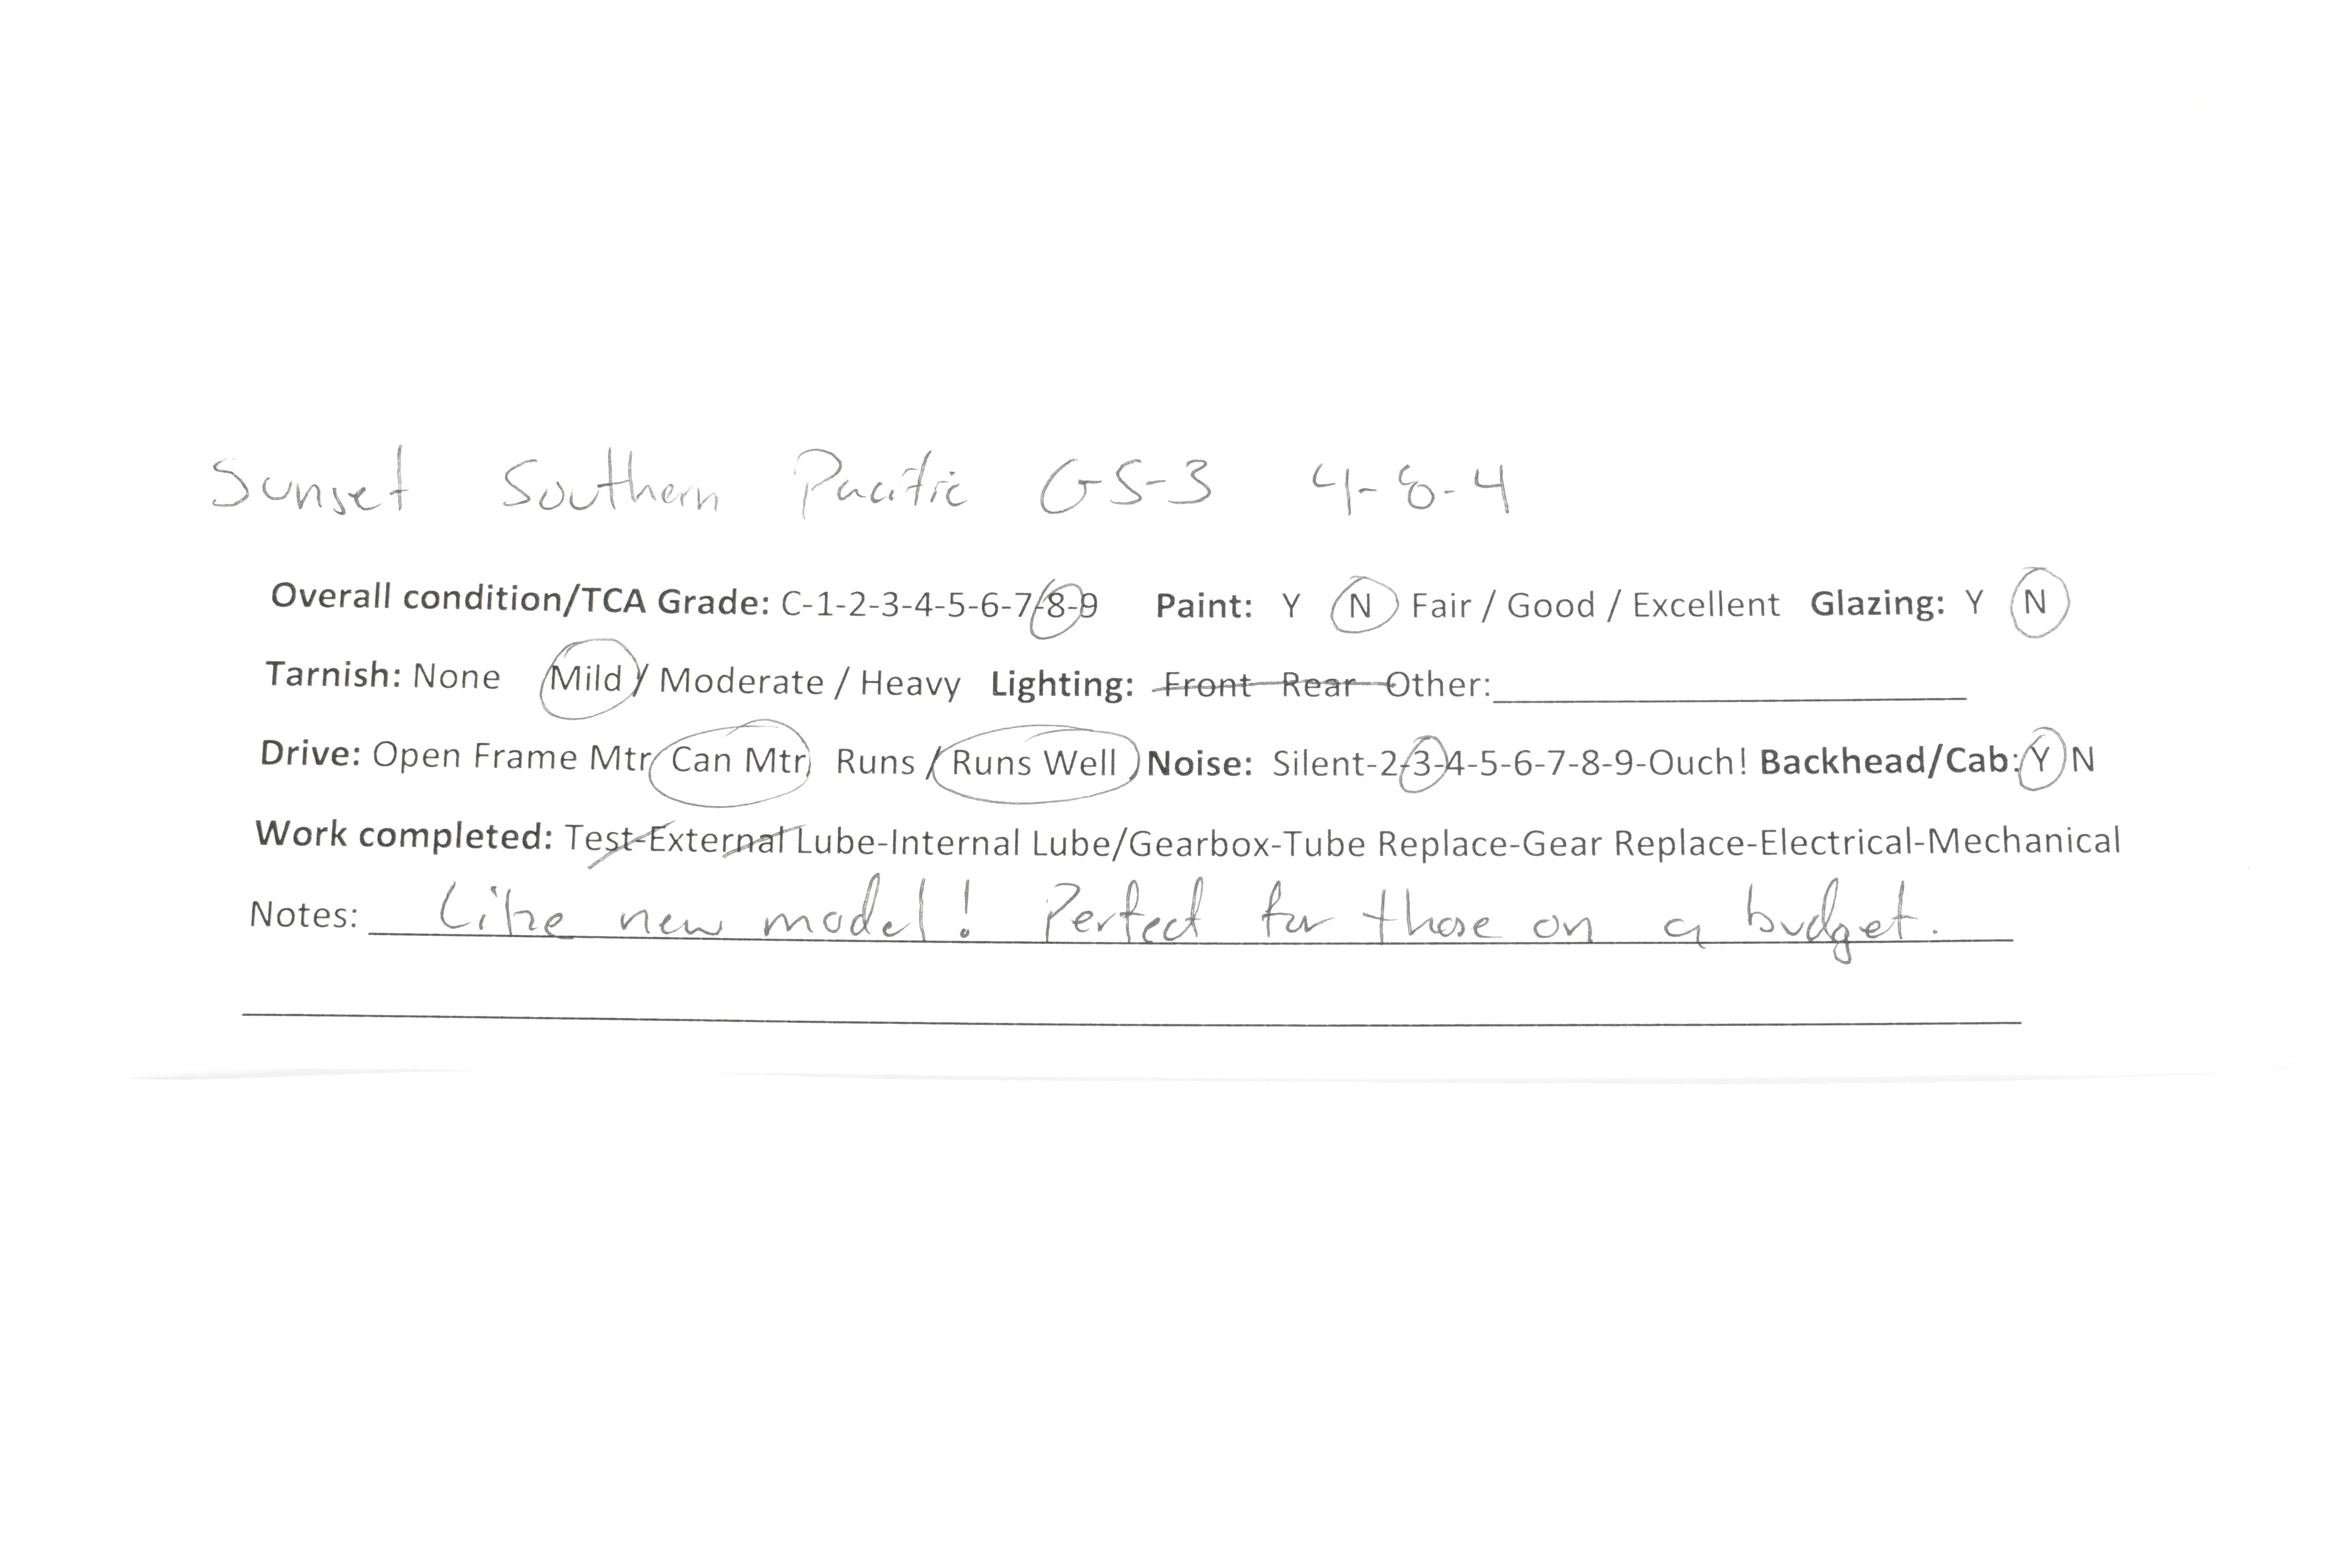 Sunset Southern Pacific GS-3 4-8-4
Overall condition/TCA Grade: C-1-2-3-4-5-6-7-8-9 Paint: Y N Fair / Good / Excellent Glazing: Y N
Tarnish: None Mild / Moderate / Heavy Lighting: Front Rear Other:
Drive: Open Frame Mtr Can Mtr Runs / Runs Well Noise: Silent-2-3-4-5-6-7-8-9-Ouch! Backhead/Cab: Y N
Work completed: Test-External Lube-Internal Lube/Gearbox-Tube Replace-Gear Replace-Electrical-Mechanical
Notes: Like new model! Perfect for those on a budget.